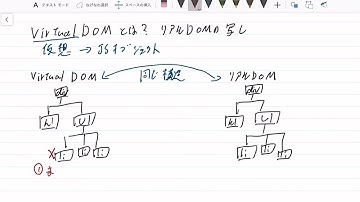 テキスト モード
なげなわ選択
スペースの挿入
Virtual DOM とは? リアルDOMの写し
仮想 → JSオブジェクト
Virtual DOM 同じ構造 リアルDOM
div div
h1 ul h1 ul
li li li li li li
①